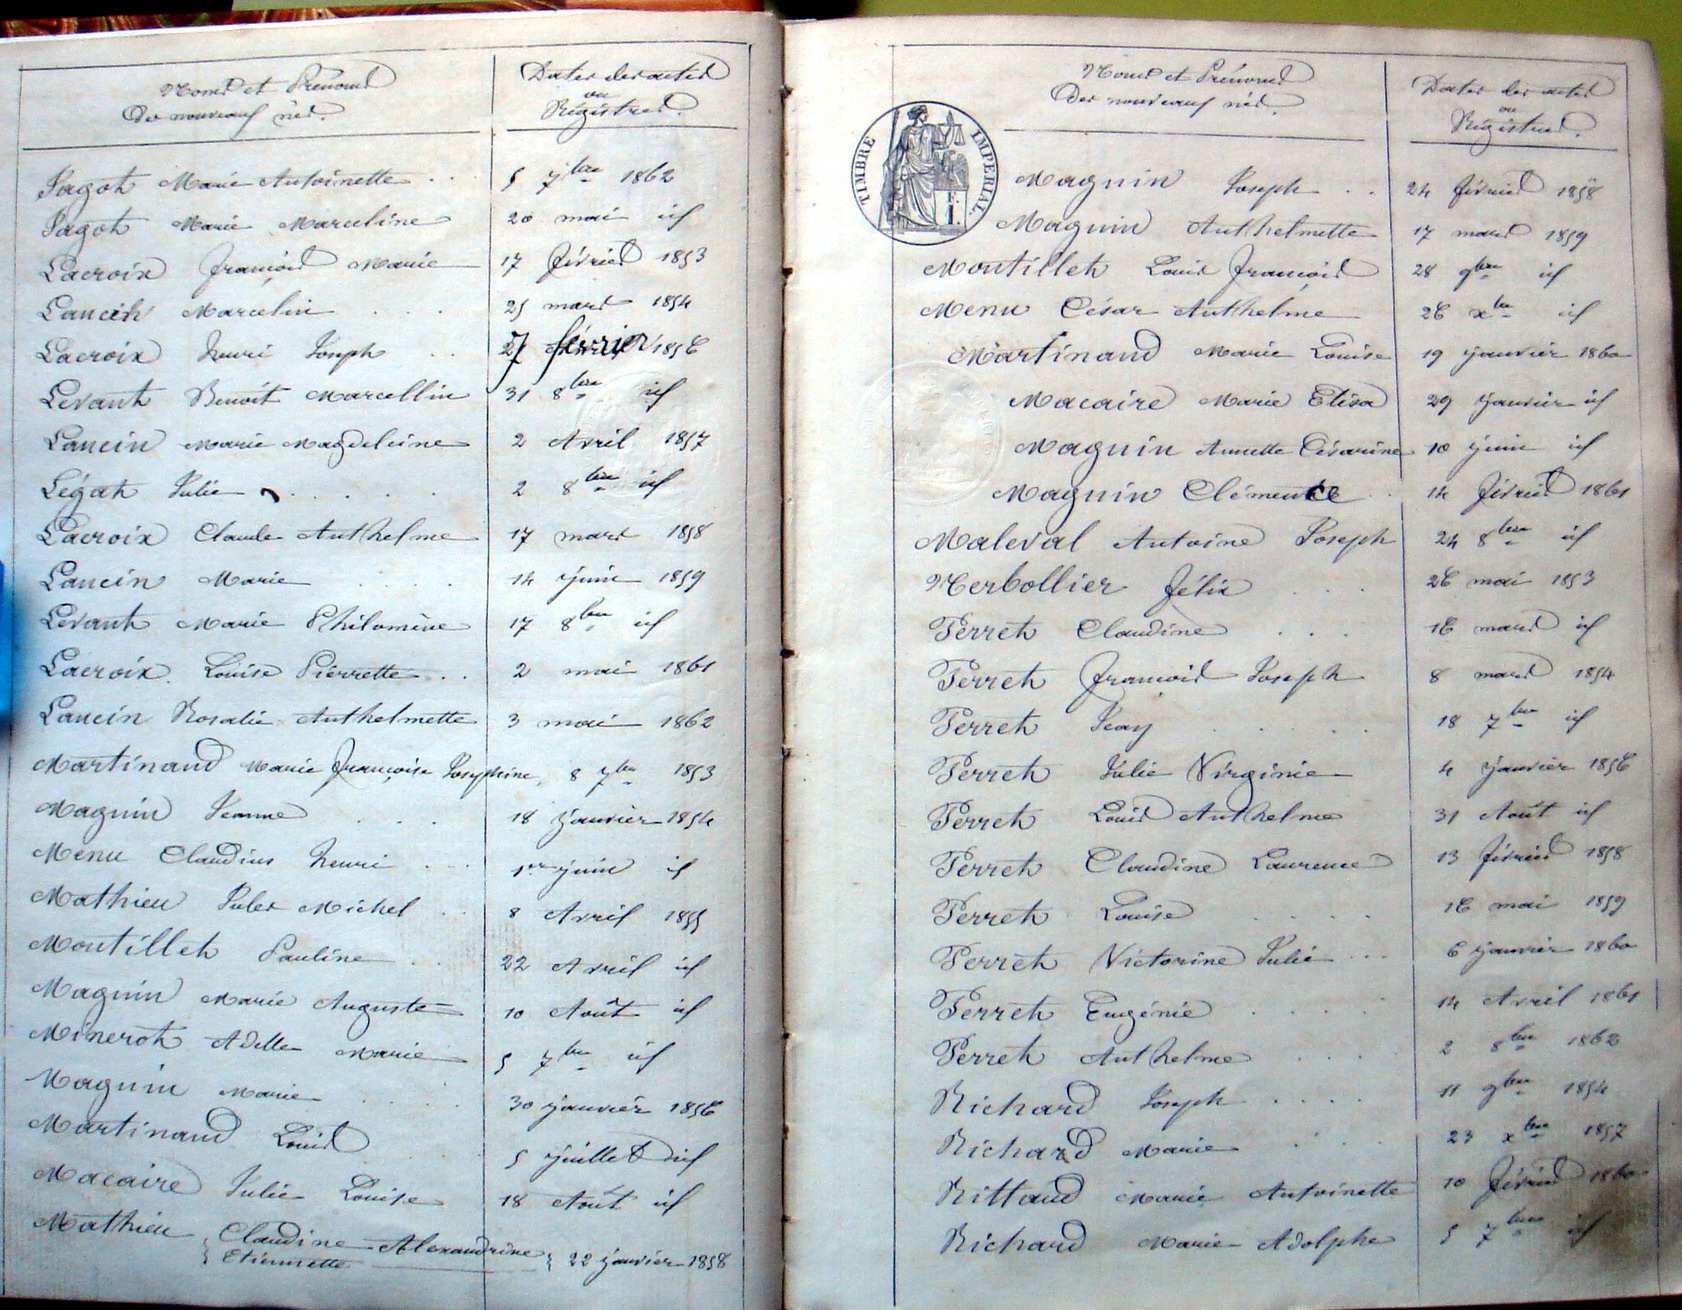 Noms et Prénoms
Des nouveaux nés.
Dates des actes
ou
Régistres.
Jagot Marie Antoinette . . 5 7bre 1862
Jagot Marie Marceline 20 mai id
Lacroix François Marie 17 février 1853
Lancin Marcelin . . . 25 mars 1854
Lacroix Henri Joseph . . 27 février 1856
Levant Benoit Marcellin 31 8bre id
Lancin Marie Magdeleine 2 Avril 1857
Légat Julie . . . . . 2 8bre id
Lacroix Claude Anthelme 17 mars 1858
Lancin Marie . . . . 14 juin 1859
Levant Marie Philomène 17 8bre id
Lacroix Louise Pierrette . . 2 mai 1861
Lancin Rosalie Anthelmette 3 mai 1862
Martinand Marie Françoise Josephine, 8 7bre 1853
Magnin Jeanne . . . 18 janvier 1854
Menu Claudius Henri . . 1er juin id
Mathieu Jules Michel . . 8 Avril 1855
Montillet Pauline . . 22 Avril id
Magnin Marie Auguste 10 Août id
Minerot Adelle Marie 5 7bre id
Magnin Marie . . . . 30 janvier 1856
Martinand Louis . . . 5 juillet id
Macaire Julie Louise 18 Août id
Mathieu { Claudine Alexandrine } 22 janvier 1858
{ Etiennette
Noms et Prénoms
Des nouveaux nés.
Dates des actes
ou
Régistres.
TIMBRE IMPERIAL.
1 F.
Magnin Joseph . . 24 février 1858
Magnin Anthelmette 17 mars 1859
Montillet Louis François 28 9bre id
Menu César Anthelme 26 xbre id
Martinand Marie Louise 19 janvier 1860
Macaire Marie Elisa 29 janvier id
Magnin Annette Césarine 10 juin id
Magnin Clémence . . 14 février 1861
Maleval Antoine Joseph 24 8bre id
Nerbollier Félix . . . 26 mai 1853
Perret Claudine . . . 16 mars id
Perret François Joseph 8 mars 1854
Perret Jean . . . . . 18 7bre id
Perret Julie Virginie 4 janvier 1856
Perret Louis Anthelme 31 Août id
Perret Claudine Laurence 13 février 1858
Perret Louise . . . . . 16 mai 1859
Perret Victorine Julie . . . 6 janvier 1860
Perret Eugénie . . . . 14 Avril 1861
Perret Anthelme . . . . 2 8bre 1862
Richard Joseph . . . . 11 9bre 1854
Richard Marie . . . 23 xbre 1857
Rittaud Marie Antoinette 10 février 1860
Richard Marie Adolphe 5 7bre id